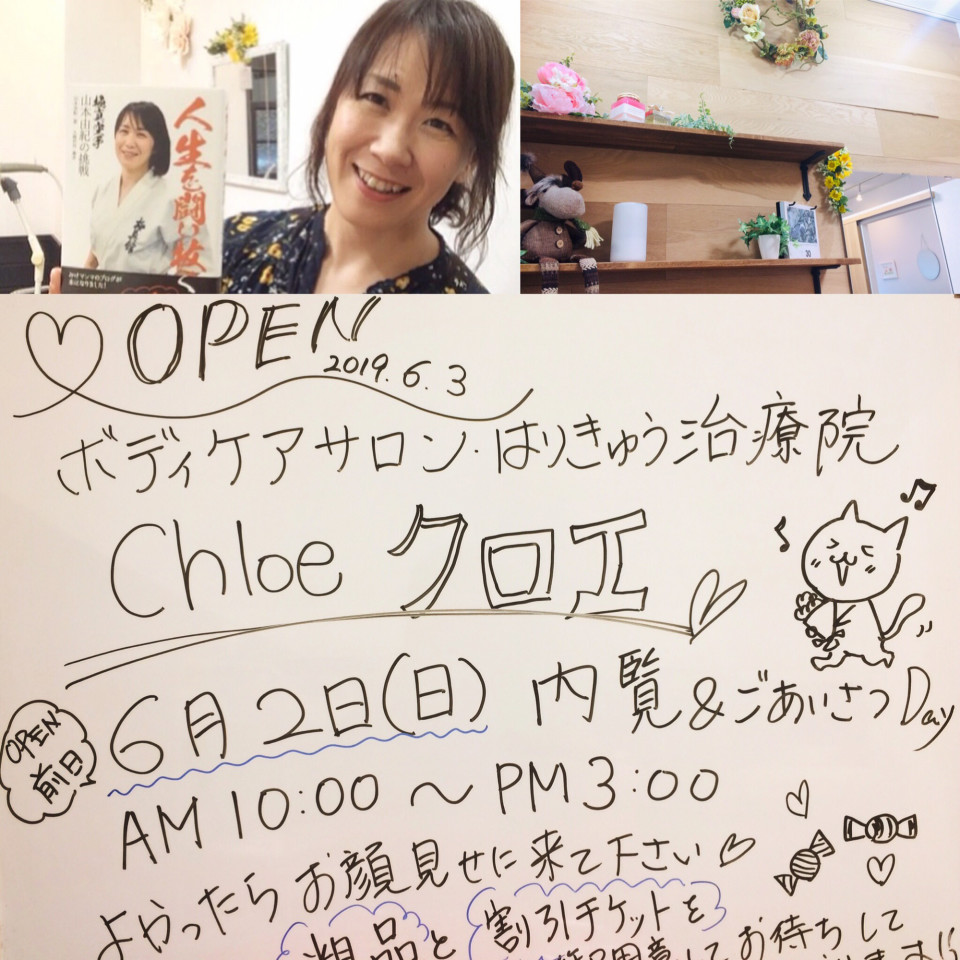 極真空手
山本由紀の挑戦
人生を闘い抜
OPEN
2019.6.3
ボディケアサロン・はりきゅう治療院
Chloe クロエ
OPEN
前日
6月2日(日) 内覧&ごあいさつDay
AM10:00〜PM3:00
よかったらお顔見せに来て下さい
粗品と割引チケットを
用意してお待ちして
30